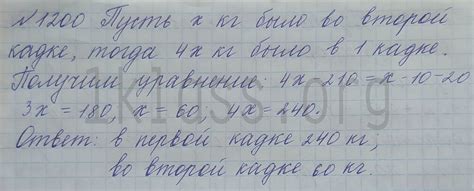 N 1200 Пусть x кг было во второй
кадке, тогда 4x кг было в 1 кадке.
Получим уравнение: 4x - 210 = x - 10 - 20
3x = 180, x = 60; 4x = 240.
Ответ: в первой кадке 240 кг;
во второй кадке 60 кг.
1klass.org